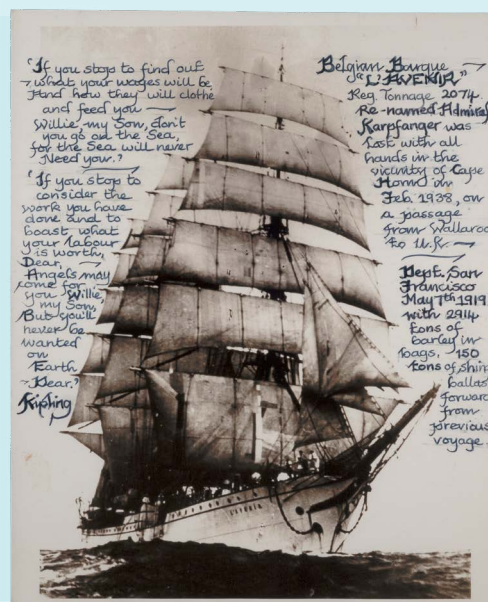 'If you stop to find out
what your wages will be
And how they will clothe
and feed you —
Willie, my Son, don't
you go on the Sea,
for the Sea will never
Need you.'
'If you stop to
consider the
work you have
done and to
boast what
your labour
is worth,
Dear,
Angels may
come for
you Willie,
my Son,
But you'll
never be
wanted
on
Earth
Dear.'
Kipling
Belgian Barque
"L'AVENIR"
Reg. Tonnage 2074.
Re-named Admiral
Karpfanger was
lost with all
hands in the
vicinity of Cape
Horn in
Feb. 1938, on
a passage
from Wallaroo
to U.K. —
Dept. San
Francisco
May 7th 1919
with 2914
tons of
barley in
bags, 150
tons of shin
ballast
forward
from
previous
voyage.
L'AVENIR